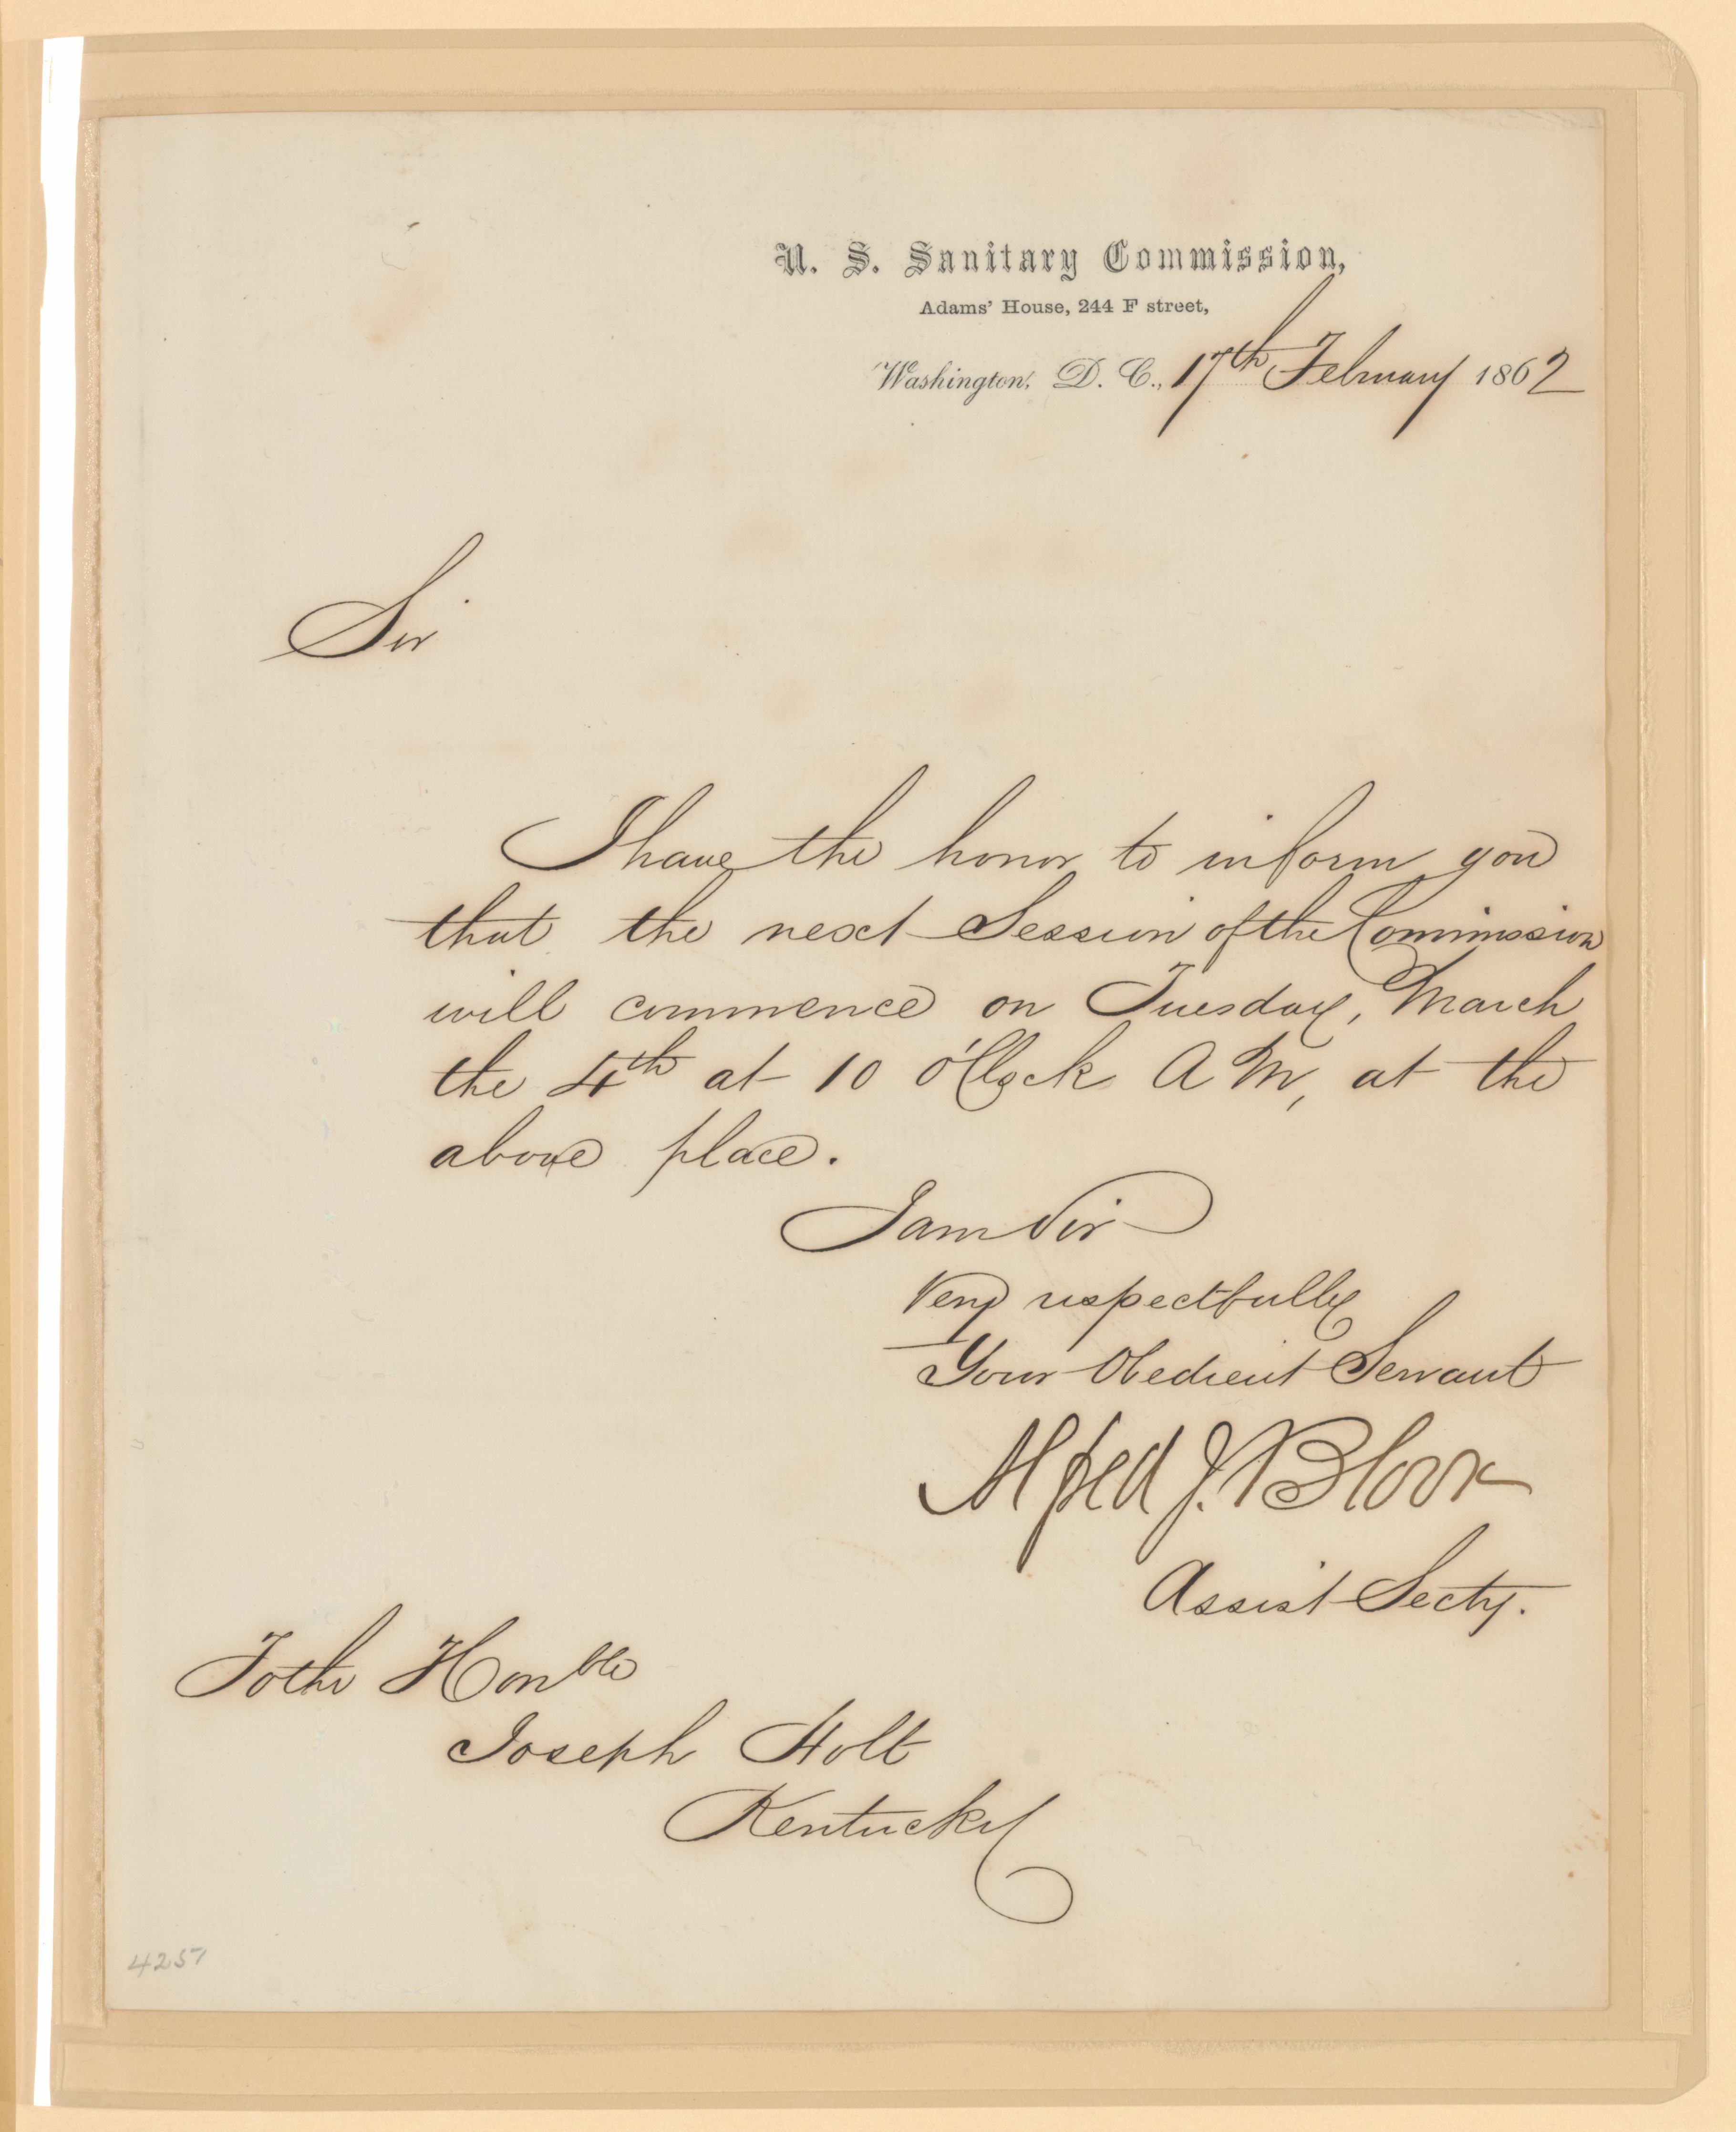 U. S. Sanitary Commission,
Adams' House, 244 F street,
Washington, D. C., 17th February 1862
Sir
I have the honor to inform you
that the next Session of the Commission
will commence on Tuesday, March
the 4th at 10 o'Clock A M, at the
above place.
I am Sir
Very respectfully
Your Obedient Servant
Alfred J. Bloor
Assist Secty.
To the Honble
Joseph Holt
Kentucky
4257